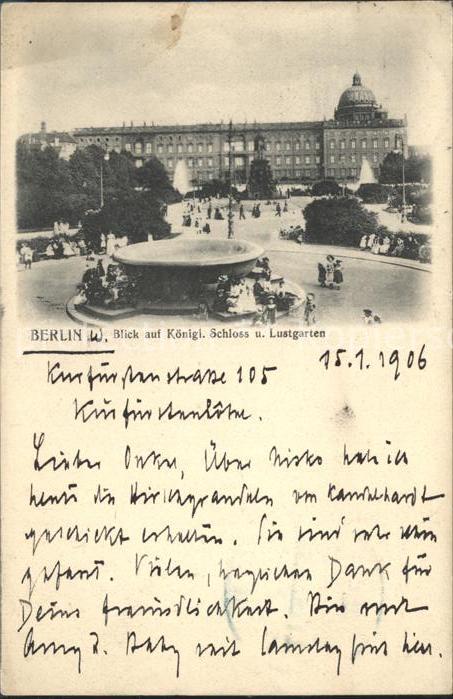 BERLIN W. Blick auf Königl. Schloss u. Lustgarten
15.1.1906
Kurfürstenstraße 105
Kurfürstenhöhe.
Lieber Onkel, Über Nisko habe ich
heute die Hirschgrandeln von Kandelhardt
geschickt erhalten. Sie sind sehr schön
gefasst. Vielen, herzlichen Dank für
Deine Freundlichkeit. Bin mit
Amy & Baby seit Samstag früh hier.